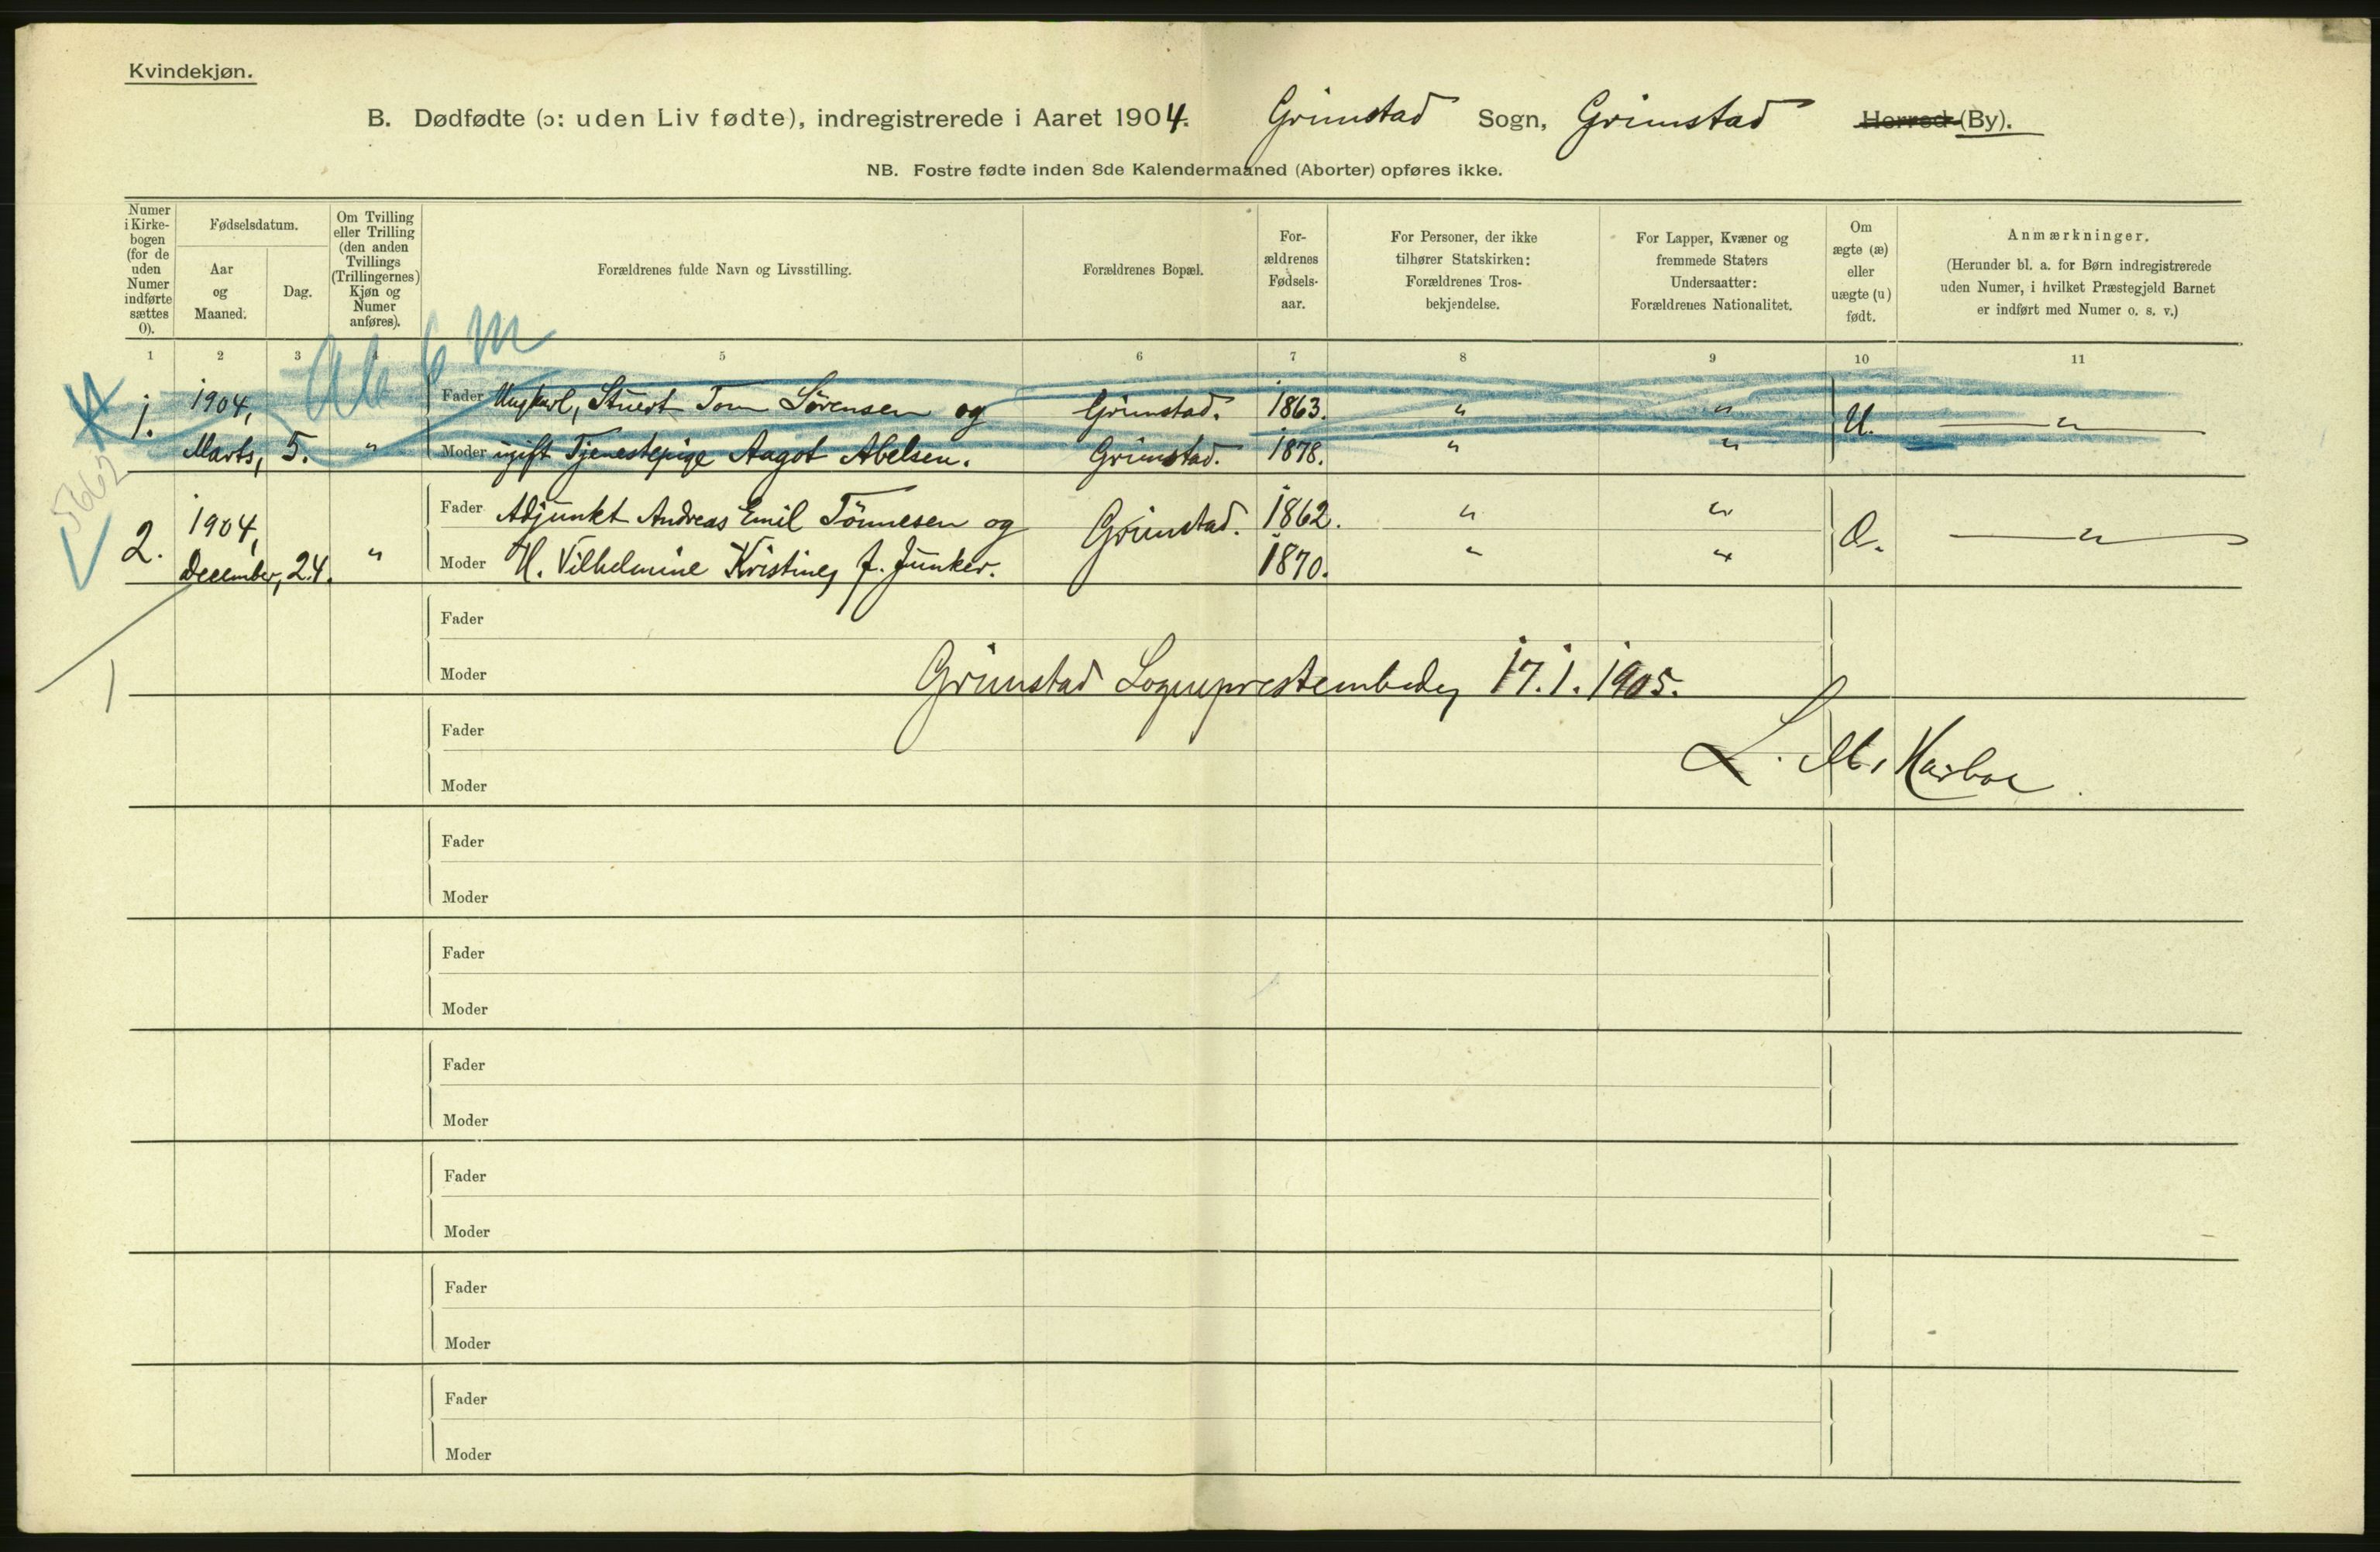 Kvindekjøn.
B. Dødfødte (ɔ: uden Liv fødte), indregistrerede i Aaret 1904. Grimstad Sogn, Grimstad Herred (By).
NB. Fostre fødte inden 8de Kalendermaaned (Aborter) opføres ikke.
Numer
i Kirke-
bogen
(for de
uden
Numer
indførte
sættes
0).
Fødselsdatum.
Aar
og
Maaned.
Dag.
Om Tvilling
eller Trilling
(den anden
Tvillings
(Trillingernes)
Kjøn og
Numer
anføres).
Forældrenes fulde Navn og Livsstilling.
Forældrenes Bopæl.
For-
ældrenes
Fødsels-
aar.
For Personer, der ikke
tilhører Statskirken:
Forældrenes Tros-
bekjendelse.
For Lapper, Kvæner og
fremmede Staters
Undersaatter:
Forældrenes Nationalitet.
Om
ægte (æ)
eller
uægte (u)
født.
Anmærkninger.
(Herunder bl. a. for Børn indregistrerede
uden Numer, i hvilket Præstegjeld Barnet
er indført med Numer o. s. v.)
1 2 3 4 5 6 7 8 9 10 11
6 m
1. 1904, Fader Ungkarl, Stuert Tom Sørensen og Grimstad. 1863. " " U. "
Marts, 5. " Moder ugift Tjenestepige Aagot Abelsen. Grimstad. 1878. " "
5662
2. 1904, Fader Adjunkt Andreas Emil Tönnesen og Grimstad. 1862. " " "
December, 24. " Moder H. Vilhelmine Kristine, f. Junker. 1870. " "
Fader
Moder Grimstad Sogneprestembede, 17.1.1905.
Fader
L. M. Harboe
Moder
Fader
Moder
Fader
Moder
Fader
Moder
Fader
Moder
Fader
Moder
Fader
Moder